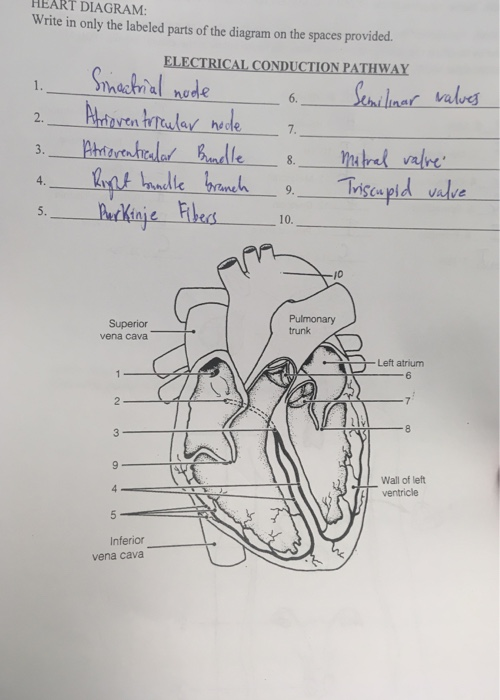 HEART DIAGRAM:
Write in only the labeled parts of the diagram on the spaces provided.
ELECTRICAL CONDUCTION PATHWAY
1. Sinoatrial node
6. Semilinar valves
2. Atrioventricular node
7.
3. Atrioventicular Bundle
8. mitral valve
4. Right bundle branch
9. Triscupid valve
5. Purkinje Fibers
10.
10
Superior
vena cava
Pulmonary
trunk
Left atrium
1
6
2
7
3
8
9
4
Wall of left
ventricle
5
Inferior
vena cava